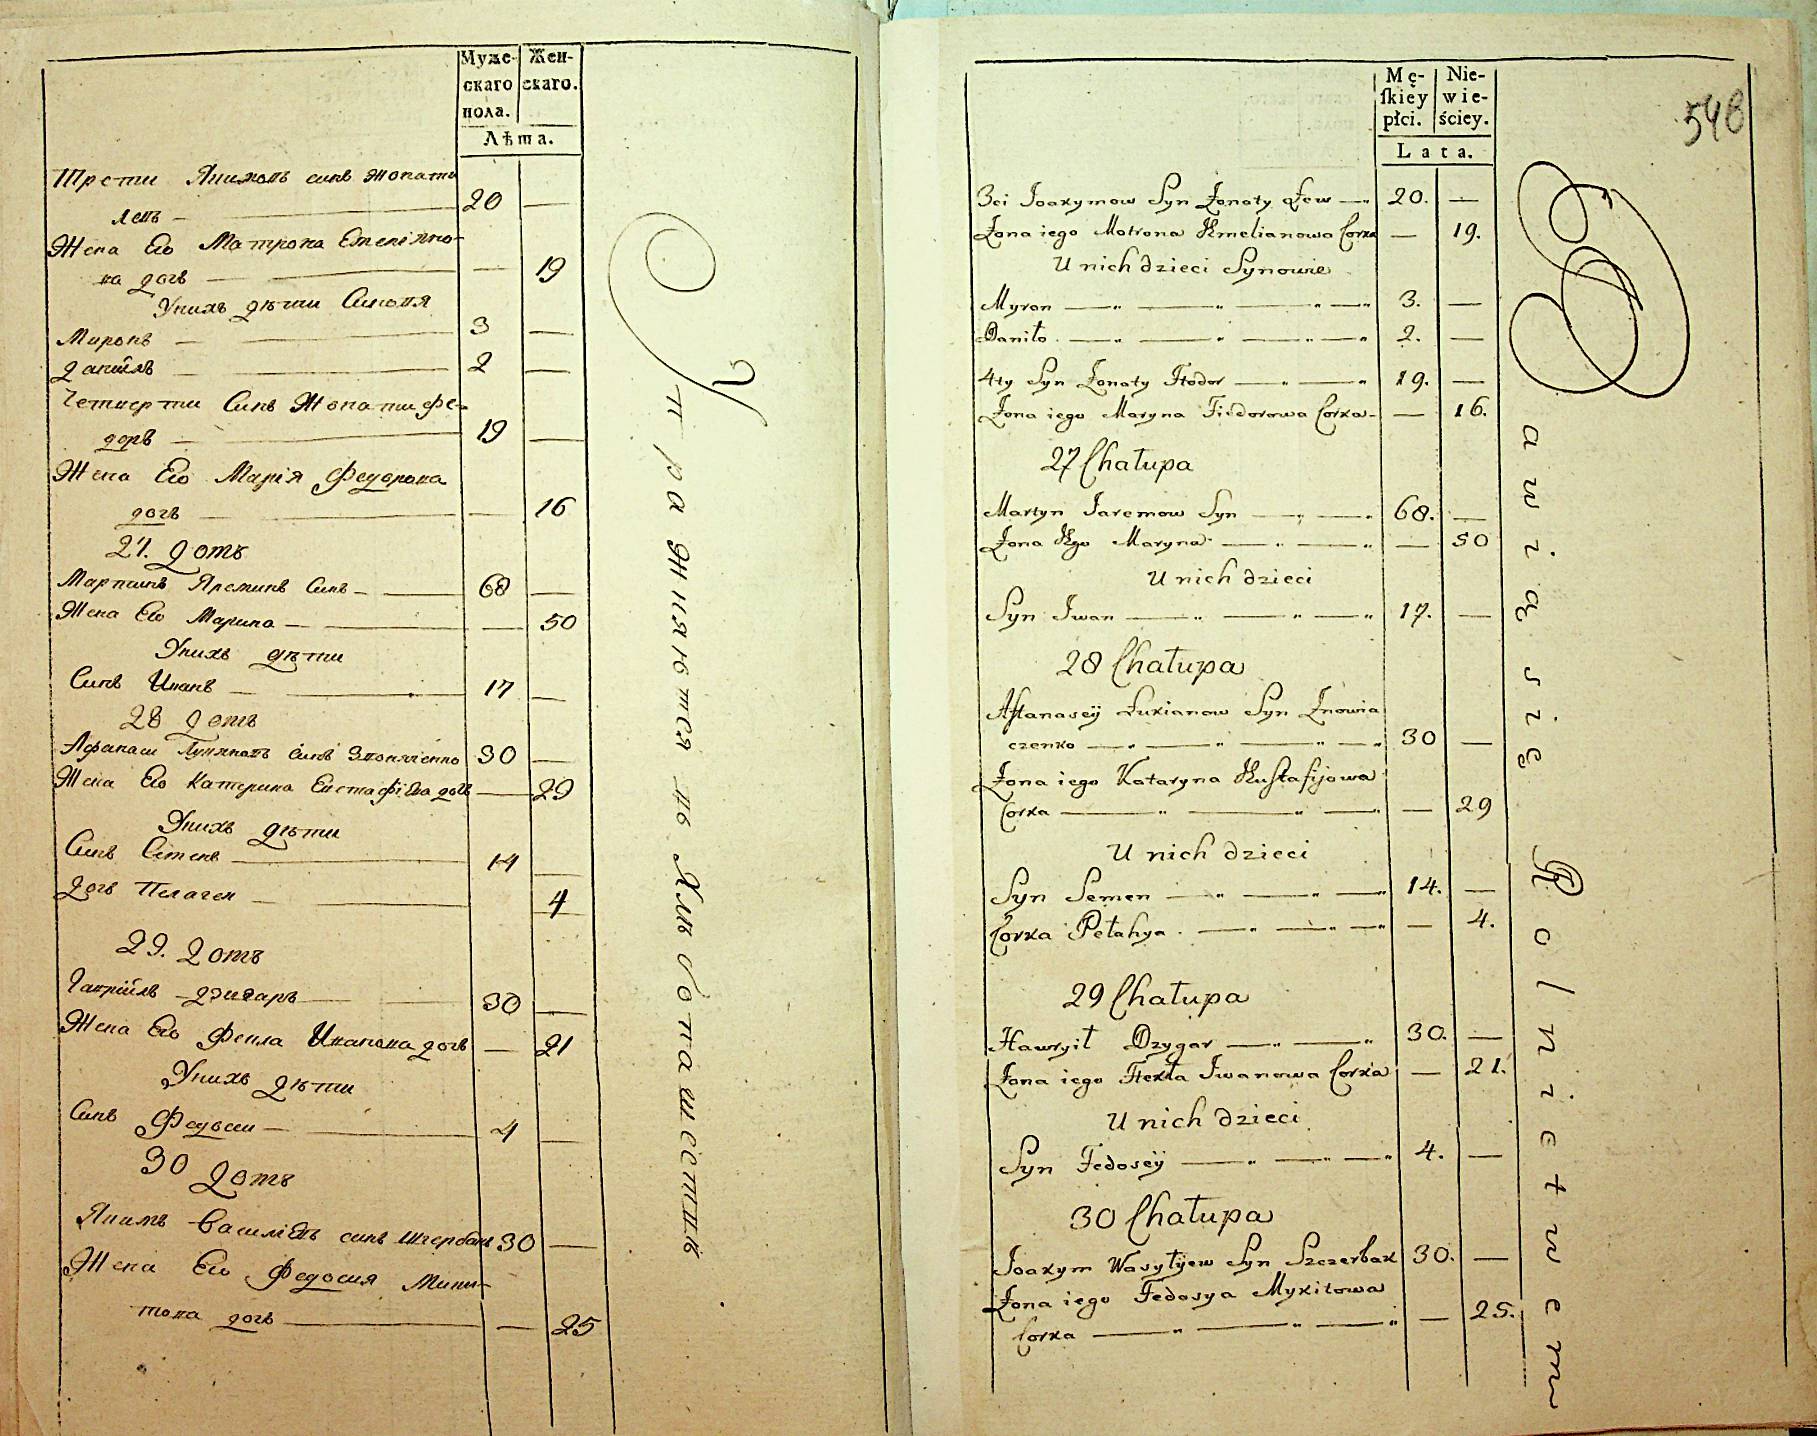 Муже-
скаго
пола.
Жен-
скаго.
Лѣта.
Трети Якимовъ синъ Жонати
левъ — 20 —
Жена Его Матрона Емелiяно-
ва дочъ — — 19
Унихъ дѣти Синовя
Миронъ — 3 —
Данiйлъ — 2 —
Четверти Синъ Жонати Фе-
доръ — 19 —
Жена Его Марiя Федорова
дочъ — — 16
27. Домъ
Мартинъ Яреминъ Синъ — 68 —
Жена Его Марина — — 50
Унихъ дѣти
Синъ Иванъ — 17 —
28 Домъ
Афанаси Лукяновъ синъ 30 —
Жена Его Катерина Евстафiева дочъ — 29
Унихъ дѣти
Синъ Семенъ — 14 —
Дочъ Пелагея — 4
29. Домъ
Гаврiйлъ Дзигаръ — 30 —
Жена Его Фекла Иванова дочъ — 21
Унихъ дѣти
Синъ Федоси — 4 —
30 Домъ
Якимъ Василiевъ синъ Щербакъ 30 —
Жена Его Федосия Мики-
това дочъ — — 25
Упражняются въ Хлѣбопашествѣ
548
Mę-
ſkiey
płci.
Nie-
wie-
ściey.
Lata.
3ci Joakymow Syn Żonaty Łew — 20. —
Żona iego Motrona Emelianowa Corka — 19.
U nich dzieci Synowie
Myron — 3. —
Daniło — 2. —
4ty Syn Żonaty Fedor — 19. —
Żona iego Maryna Fiedorowa Corka — — 16.
27 Chałupa
Martyn Jaremow Syn — 68. —
Żona Ego Maryna — — 50
U nich dzieci
Syn Iwan — 17. —
28 Chałupa
Aftanasey Łukianow Syn Znowia
czenko — 30 —
Żona iego Kataryna Eustafijowa
Corka — — 29
U nich dzieci
Syn Semen — 14. —
Corka Pełahya — — 4.
29 Chałupa
Hawryił Dzygar — 30. —
Żona iego Fekła Iwanowa Corka — 21.
U nich dzieci
Syn Fedosey — 4. —
30 Chałupa
Joakym Wasyłyew Syn Szczerbak 30. —
Żona iego Fedosya Mykitowa
Corka — — 25.
Bawią się Rolnictwem